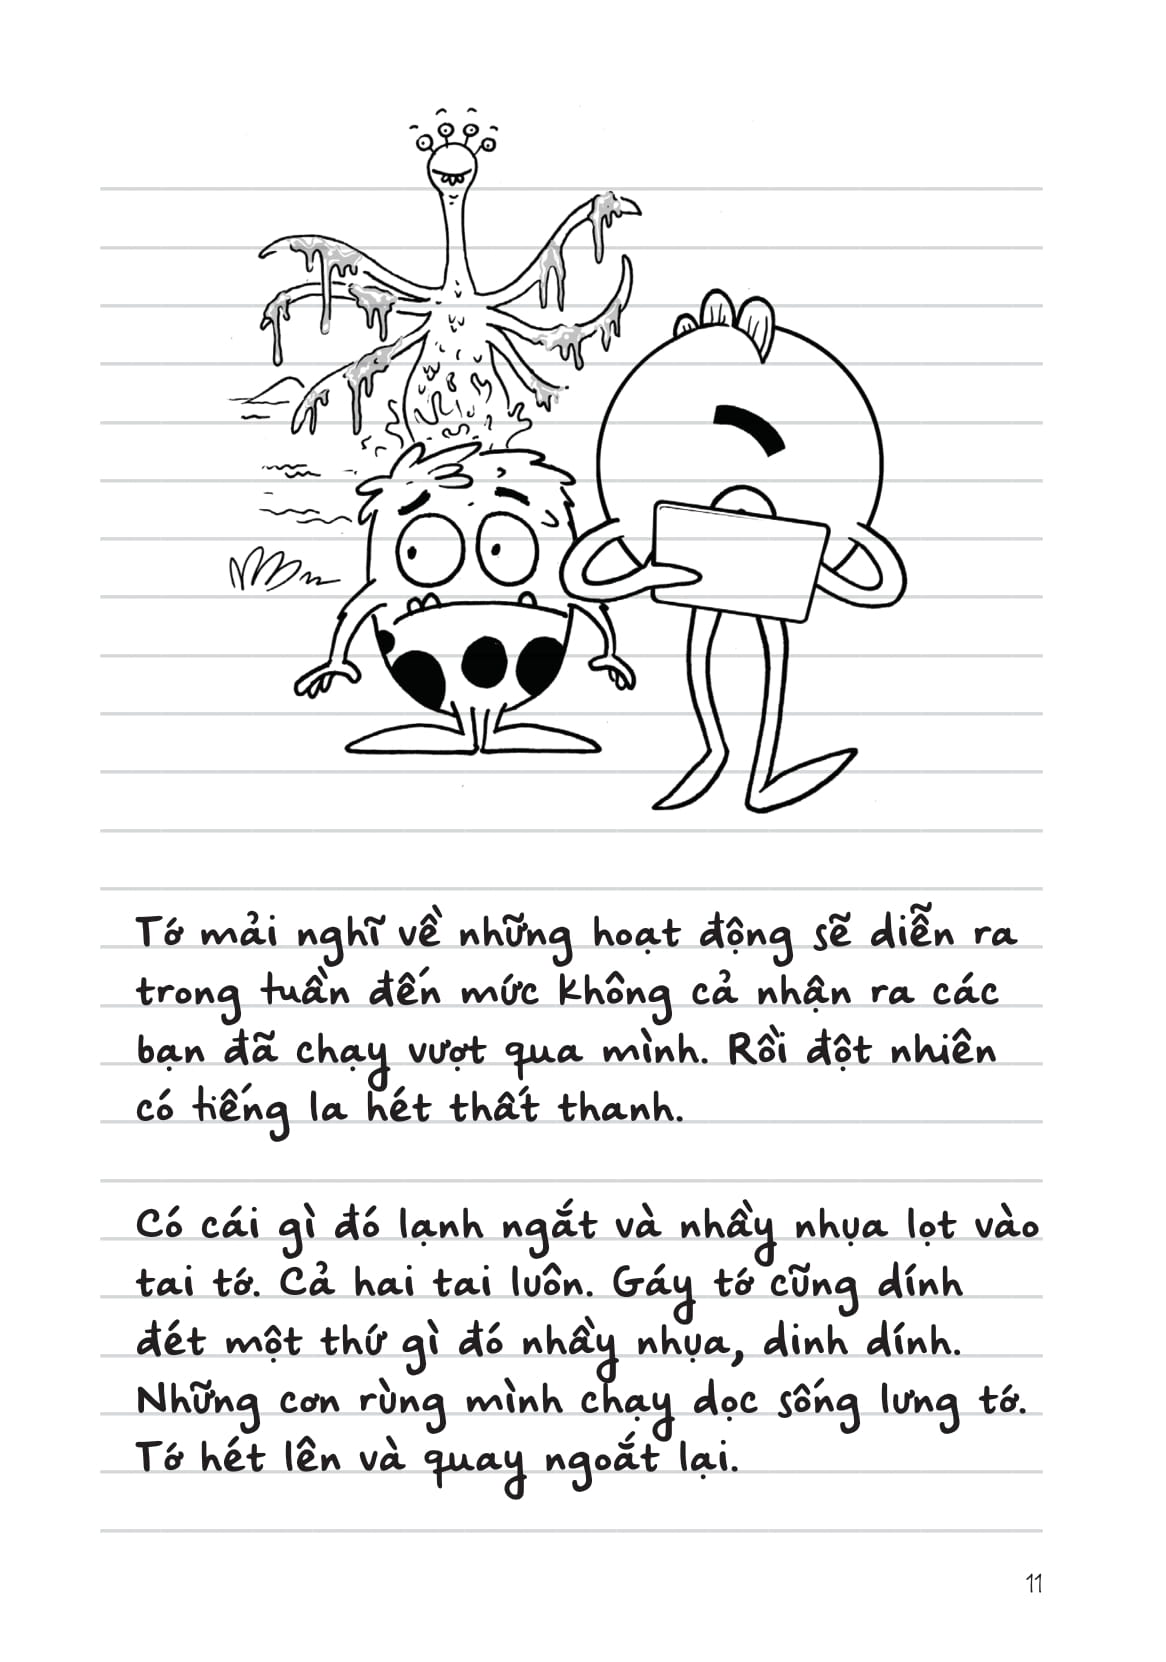 Tớ mải nghĩ về những hoạt động sẽ diễn ra
trong tuần đến mức không cả nhận ra các
bạn đã chạy vượt qua mình. Rồi đột nhiên
có tiếng la hét thất thanh.
Có cái gì đó lạnh ngắt và nhầy nhụa lọt vào
tai tớ. Cả hai tai luôn. Gáy tớ cũng dính
đét một thứ gì đó nhầy nhụa, dinh dính.
Những cơn rùng mình chạy dọc sống lưng tớ.
Tớ hét lên và quay ngoắt lại.
11